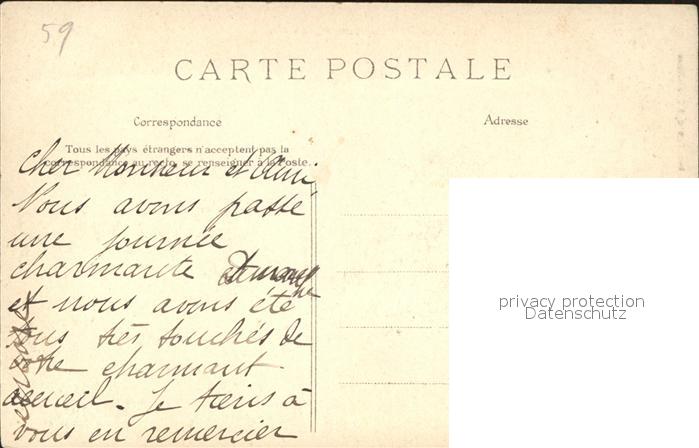 59
CARTE POSTALE
Correspondance
Adresse
Tous les pays étrangers n'acceptent pas la
correspondance au recto, se renseigner à la Poste.
Cher Monsieur et Ami
Nous avons passé
une journée
charmante
et nous avons été
tous très touchés de
votre charmant
accueil. Je tiens à
vous en remercier
privacy protection
Datenschutz